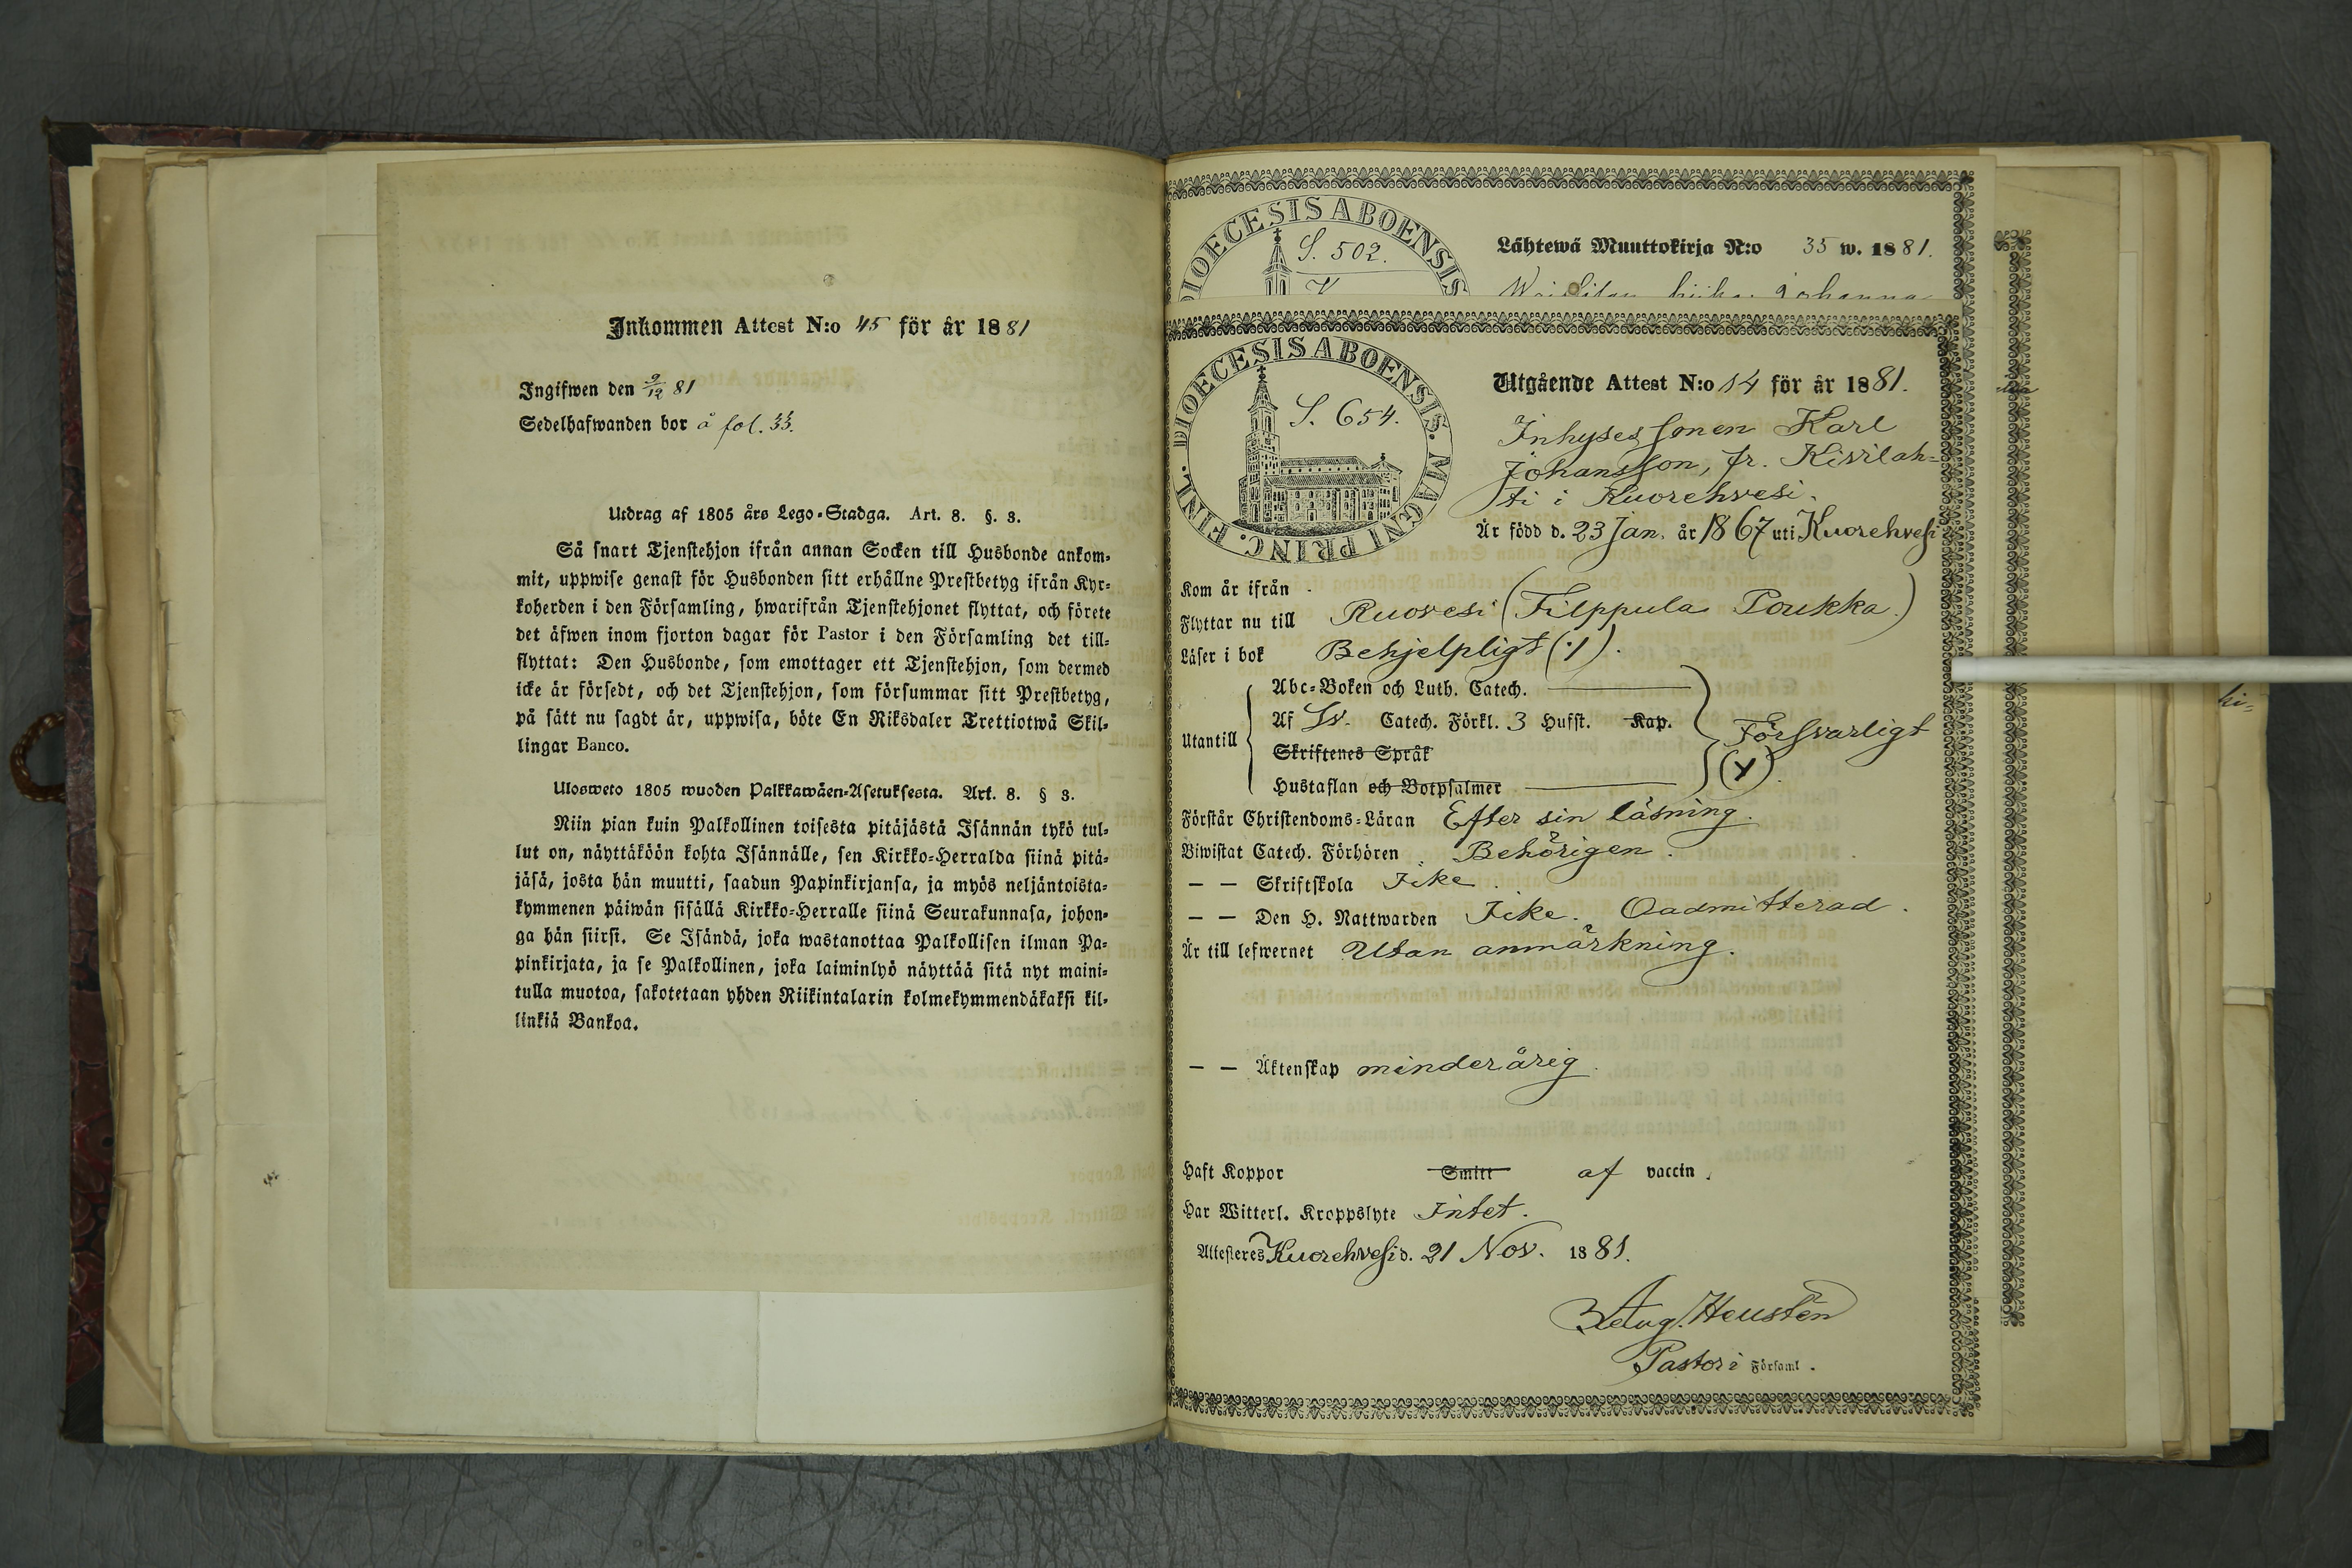 Inkommen Attest N:o 45 för år 1881
Ingifwen den 9/12 81
Sedelhafwanden bor å fol. 33.
Utdrag af 1805 års Lego-Stadga. Art. 8. §. 3.
Så snart Tjenstehjon ifrån annan Socken till Husbonde ankom-
mit, uppwise genast för Husbonden sitt erhållne Prestbetyg ifrån Kyr-
koherden i den Församling, hwarifrån Tjenstehjonet flyttat, och förete
det äfwen inom fjorton dagar för Pastor i den Församling det till-
flyttat: Den Husbonde, som emottager ett Tjenstehjon, som dermed
icke är försedt, och det Tjenstehjon, som försummar sitt Prestbetyg,
på sätt nu sagdt är, uppwisa, böte En Riksdaler Trettiotwå Skil-
lingar Banco.
Ulosweto 1805 wuoden Palkkawäen-Asetuksesta. Art. 8. § 3.
Niin pian kuin Palkollinen toisesta pitäjästä Isännän tykö tul-
lut on, näyttäköön kohta Isännälle, sen Kirkko-Herralda siinä pitä-
jäsä, josta hän muutti, saadun Papinkirjansa, ja myös neljäntoista-
kymmenen päiwän sisällä Kirkko-Herralle siinä Seurakunnasa, johon-
ga hän siirsi. Se Isändä, joka wastanottaa Palkollisen ilman Pa-
pinkirjata, ja se Palkollinen, joka laiminlyö näyttää sitä nyt maini-
tulla muotoa, sakotetaan yhden Riikintalarin kolmekymmendäkaksi kil-
linkiä Bankoa.
DIOECESIS ABOENSIS
S. 502.
Lähtewä Muuttokirja N:o 35 w. 1881.
Johanna
DIOECESIS ABOENSIS. MAGNI PRINC. FINL.
S. 654.
Utgående Attest N:o 14 för år 1881.
Inhyses sonen Karl
Johansson, fr. Kivilah-
ti i Kuorehvesi.
Är född d. 23 Jan. år 1867 uti Kuorehvesi
Kom år ifrån
Flyttar nu till Ruovesi (Filppula Poukka.)
Läser i bok Behjelpligt (·/).
Utantill
Abc-Boken och Luth. Catech.
Af Sv. Catech. Förkl. 3 Hufst. Kap.
Skriftenes Språk
Hustaflan och Botpsalmer
Försvarligt
Förstår Christendoms-Läran Efter sin läsning.
Biwistat Catech. Förhören Behörigen.
— — Skriftskola Icke.
— — Den H. Nattwarden Icke. Oadmitterad.
Är till lefwernet Utan anmärkning.
— — Äktenskap minderårig.
Haft Koppor Smitt af vaccin.
Har Witterl. Kroppslyte Intet.
Attesteres Kuorehvesi d. 21 Nov. 1881.
Aug. Heusten
Pastor i Församl.